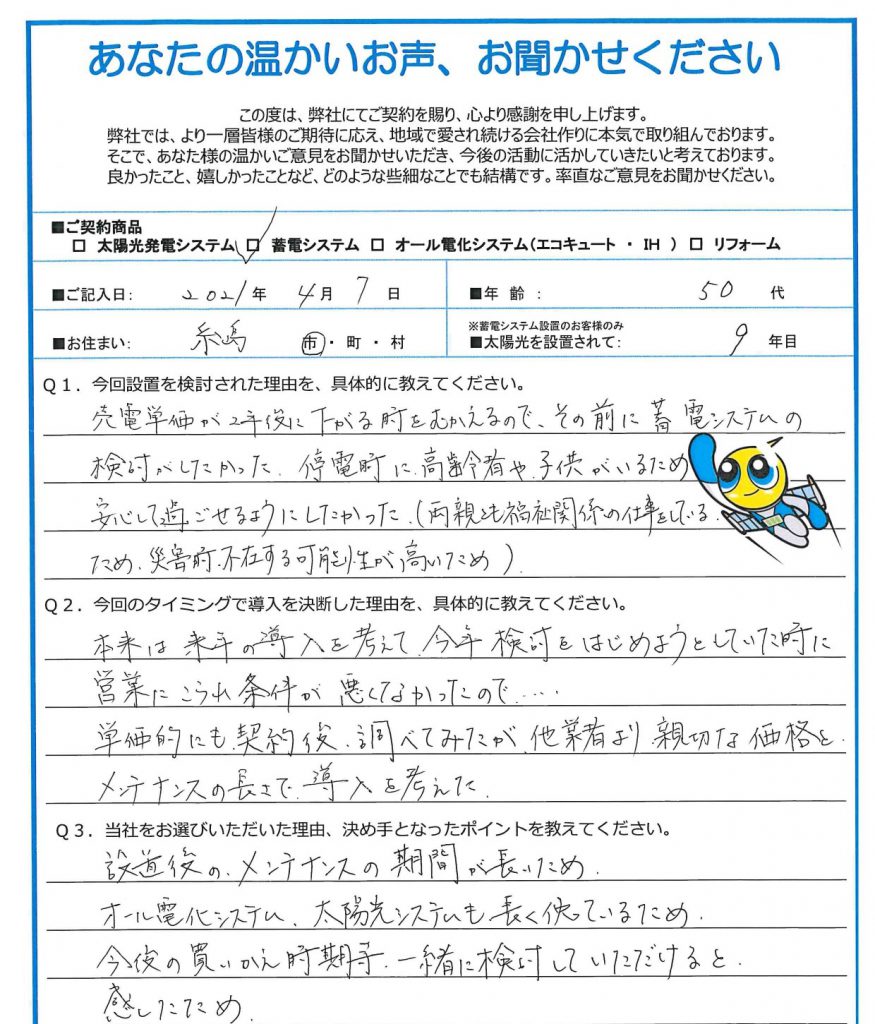 あなたの温かいお声、お聞かせください
この度は、弊社にてご契約を賜り、心より感謝を申し上げます。
弊社では、より一層皆様のご期待に応え、地域で愛され続ける会社作りに本気で取り組んでおります。
そこで、あなた様の温かいご意見をお聞かせいただき、今後の活動に活かしていきたいと考えております。
良かったこと、嬉しかったことなど、どのような些細なことでも結構です。率直なご意見をお聞かせください。
■ご契約商品
□ 太陽光発電システム ☑ 蓄電システム □ オール電化システム(エコキュート ・ IH ) □ リフォーム
■ご記入日: 2021年 4月 7日 ■年 齢 : 50 代
※蓄電システム設置のお客様のみ
■お住まい: 糸島 市・町・村 ■太陽光を設置されて: 9 年目
Q1. 今回設置を検討された理由を、具体的に教えてください。
売電単価が2年後に下がる時をむかえるので、その前に蓄電システムの
検討がしたかった、停電時に高齢者や子供がいるため
安心して過ごせるようにしたかった。(両親とも福祉関係の仕事をしている
ため、災害時、不在する可能性が高いため)
Q2. 今回のタイミングで導入を決断した理由を、具体的に教えてください。
本来は来年の導入を考えて、今年検討をはじめようとしていた時に
営業にこられ条件が悪くてなかったので……
単価的にも、契約後、調べてみたが、他業者より親切な価格と、
メンテナンスの長さで、導入を考えた。
Q3. 当社をお選びいただいた理由、決め手となったポイントを教えてください。
設置後の、メンテナンスの期間が長いため、
オール電化システム、太陽光システムも長く使っているため、
今後の買いかえ時期等、一緒に検討していただけると、
感じたため。